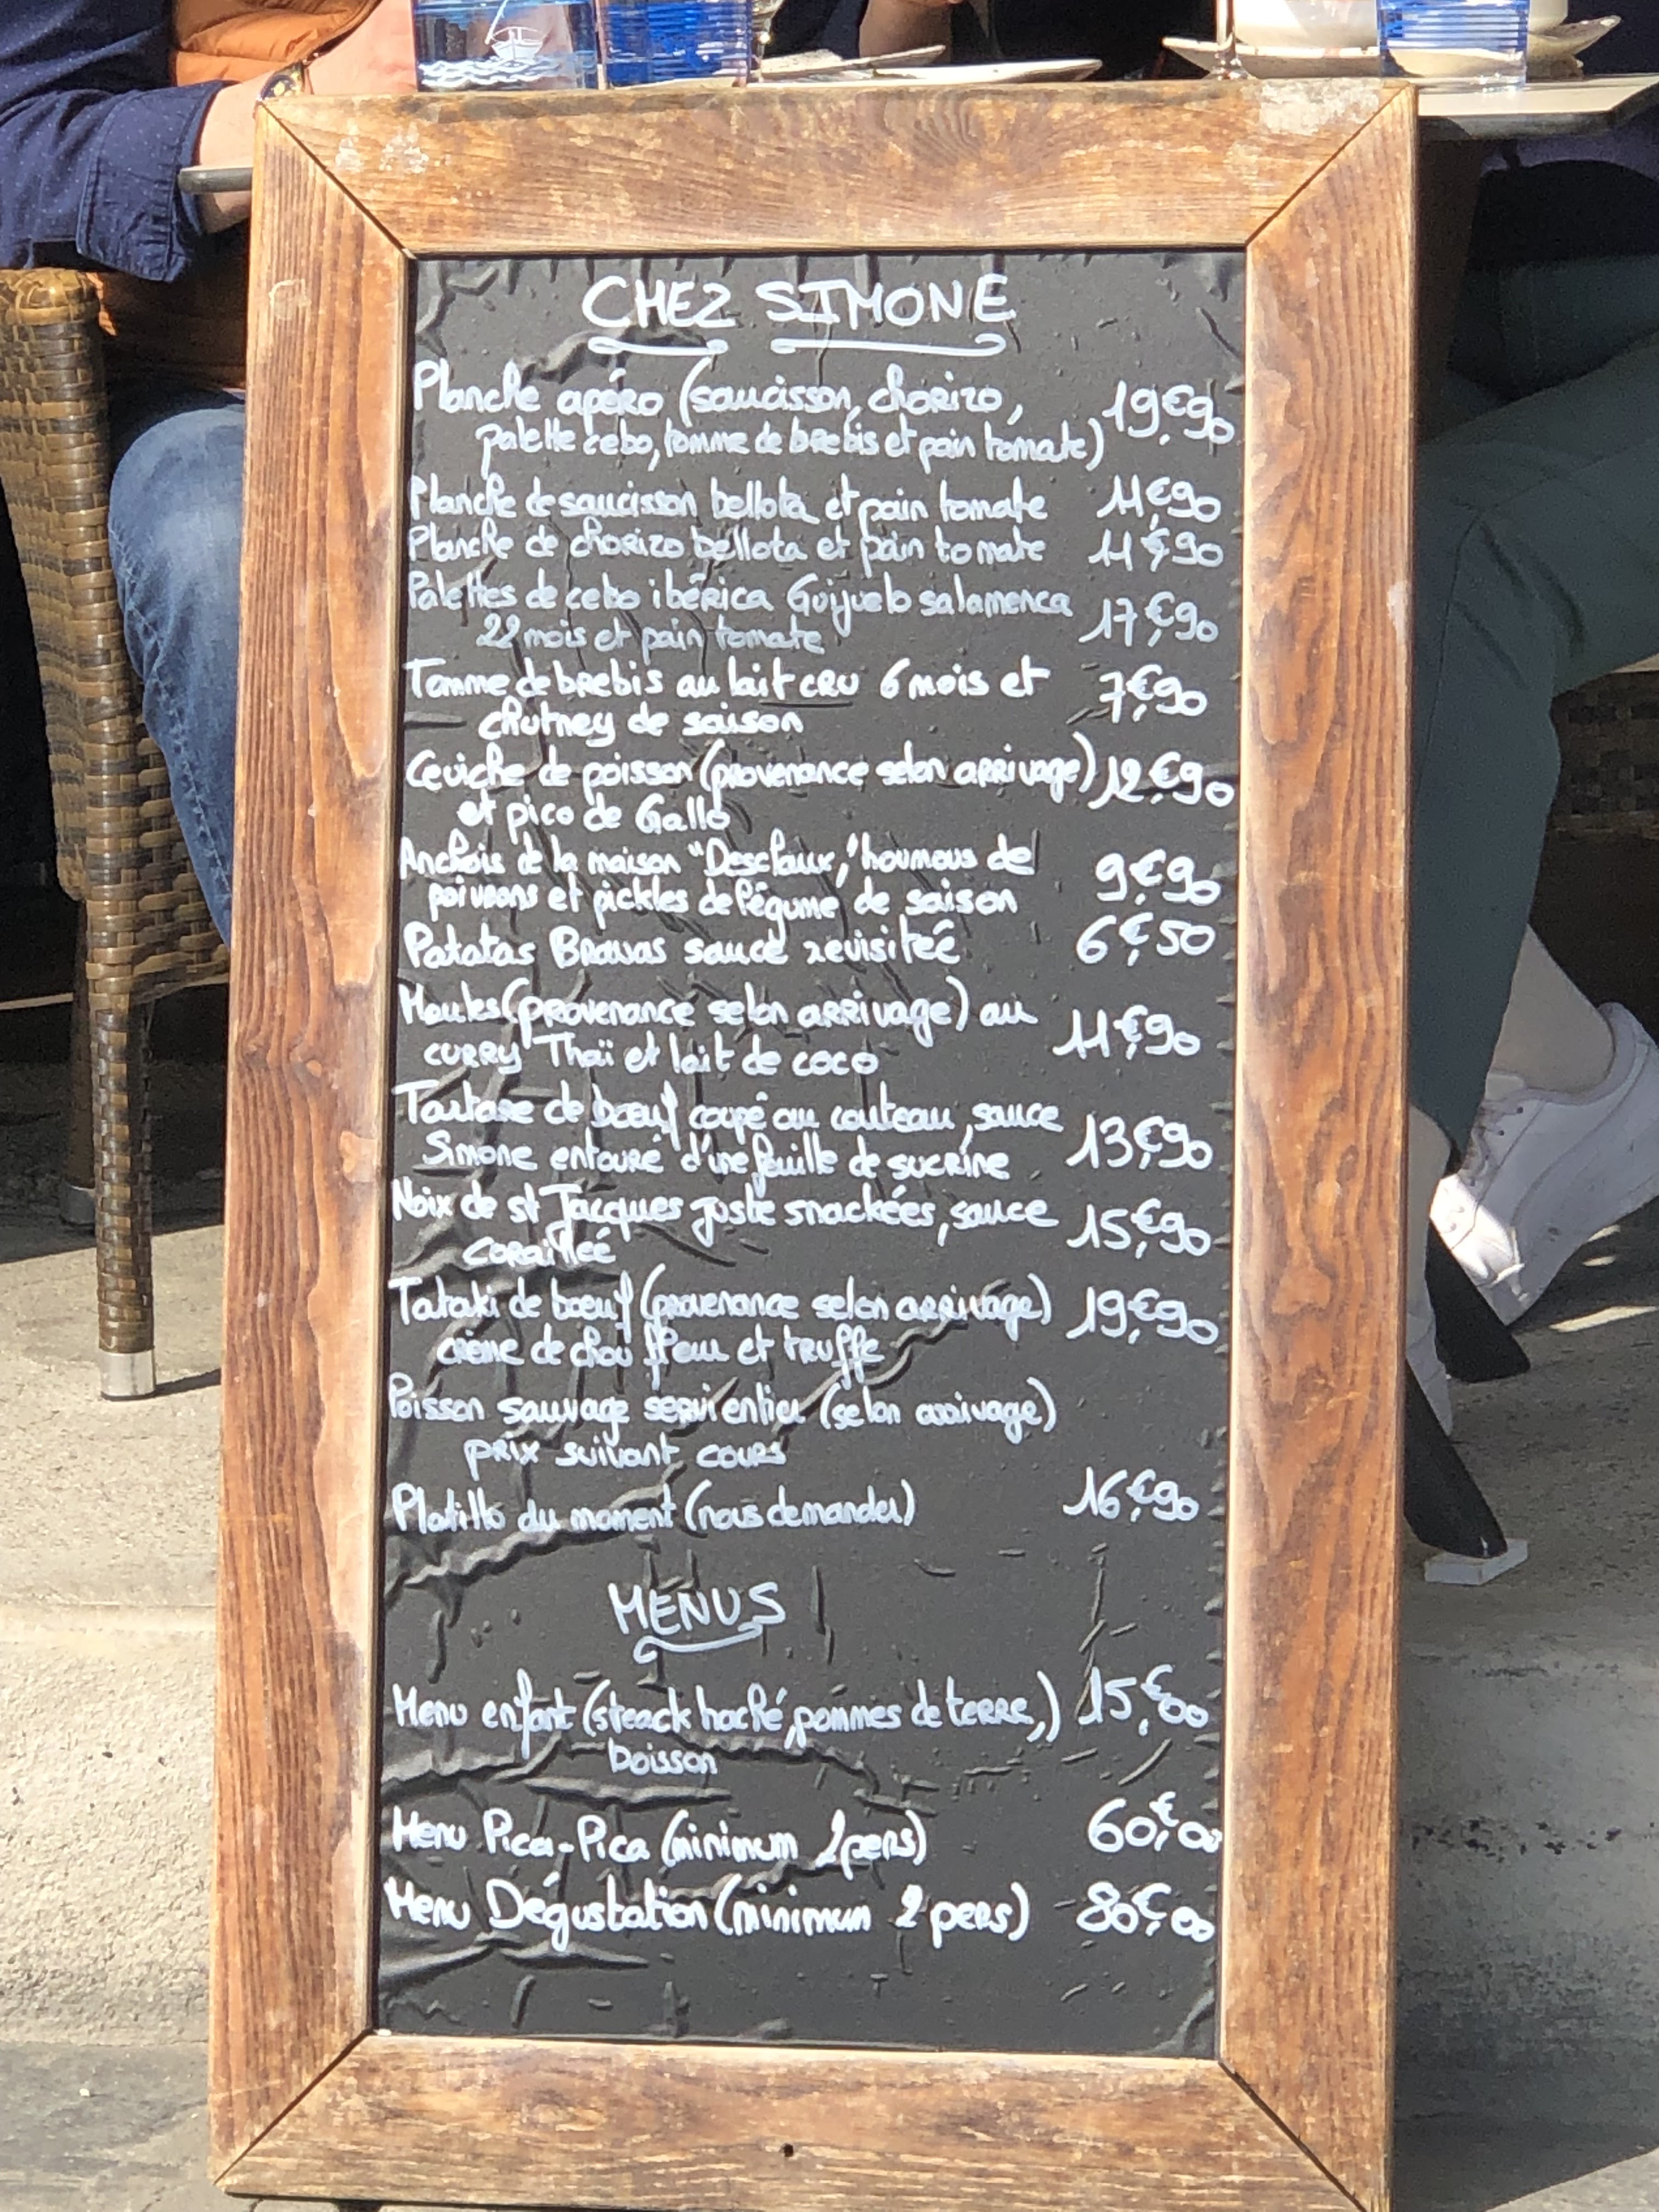 CHEZ SIMONE
Planche apéro (saucisson, chorizo, 19,€90
palette cebo, tomme de brebis et pain tomate)
Planche de saucisson bellota et pain tomate 11,€90
Planche de chorizo bellota et pain tomate 11,€90
Palettes de cebo ibérica Guijuelo salamenca 17,€90
22 mois et pain tomate
Tomme de brebis au lait cru 6 mois et 7,€90
chutney de saison
Ceviche de poisson (provenance selon arrivage) 12,€90
et pico de Gallo
Anchois de la maison "Desclaux," houmous de 9,€90
poivrons et pickles de légume de saison
Patatas Bravas sauce revisiteé 6,€50
Moules (provenance selon arrivage) au 11,€90
curry Thaï et lait de coco
Tartare de bœuf coupé au couteau, sauce 13,€90
Simone entouré d'une feuille de sucrine
Noix de st Jacques juste snackées, sauce 15,€90
corailleé
Tataki de boeuf (provenance selon arrivage) 19,€90
crème de chou fleur et truffe
Poisson sauvage servi entier (selon arrivage)
prix suivant cours
Platillo du moment (nous demander) 16,€90
MENUS
Menu enfant (steack haché, pommes de terre,) 15,€00
boisson
Menu Pica-Pica (minimum 2 pers) 60,€00
Menu Dégustation (minimum 2 pers) 80,€00